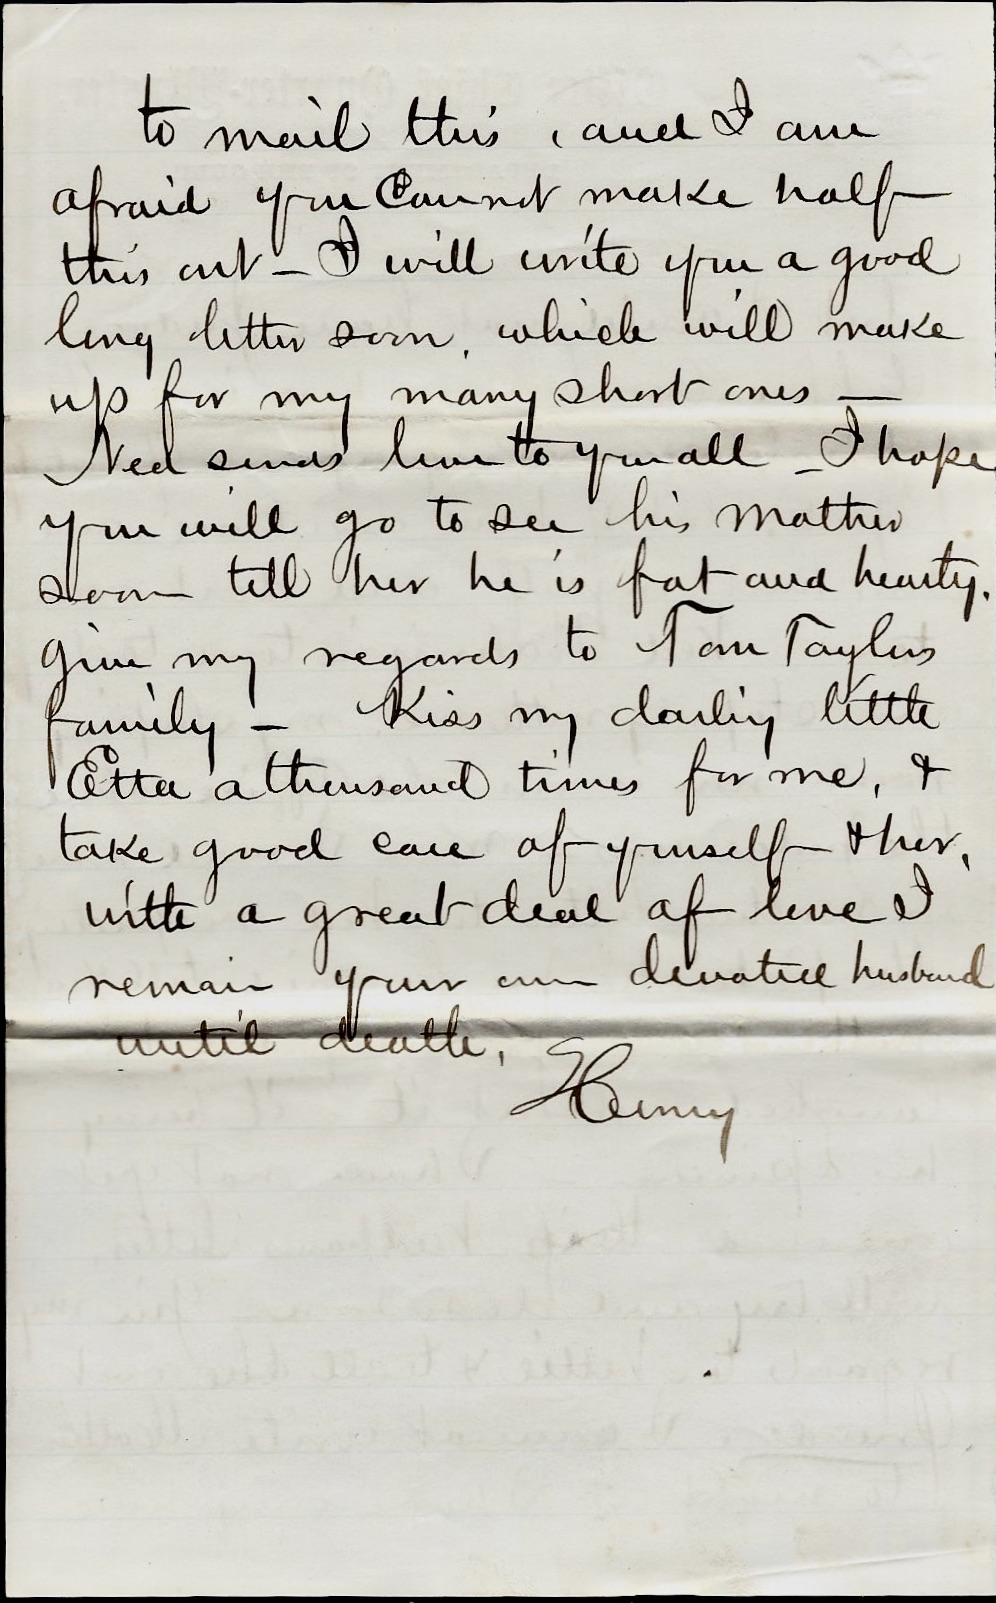 to mail this, and I am
afraid you Cannot make half
this out – I will write you a good
long letter soon, which will make
up for my many short ones –
Ned sends love to you all – I hope
you will go to see his Mother
soon tell her he is fat and hearty.
give my regards to Tom Taylors
family – Kiss my darling little
Etta a thousand times for me, &
take good care of yourself & her,
with a great deal of love I
remain your own devoted husband
until death,
Henry